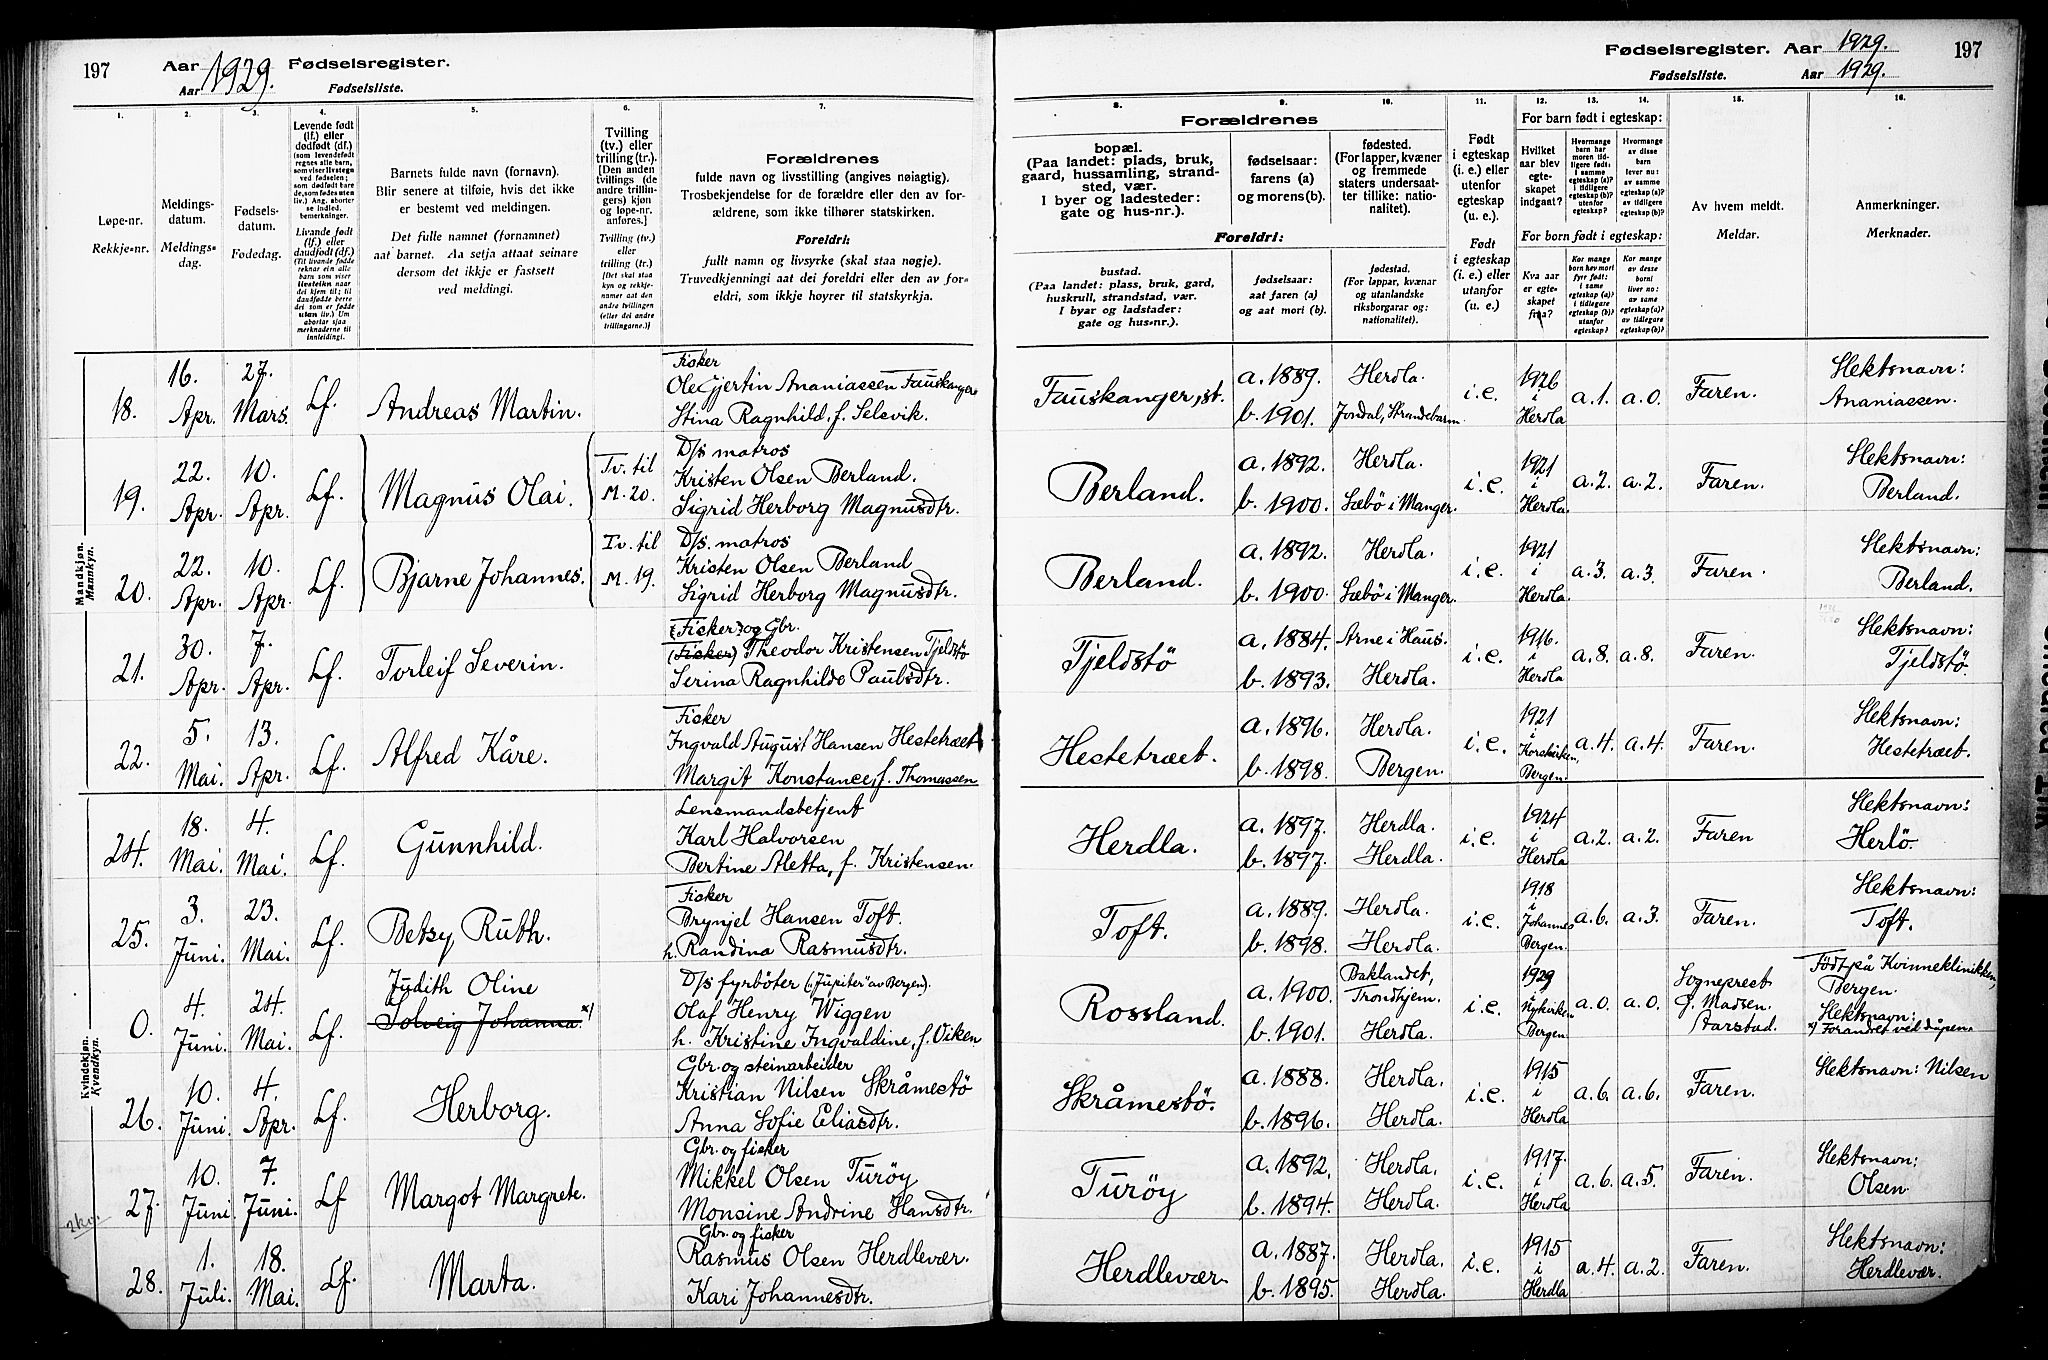 197
Aar 1929. Fødselsregister.
Aar Fødselsliste.
1. 2. 3. 4. 5. 6. 7.
Løpe-nr.
Rekkje-nr.
Meldings-
datum.
Meldings-
dag.
Fødsels-
datum.
Fødedag.
Levende født
(lf.) eller
dødfødt (df.)
(som levendefødt
regnes alle barn,
som viser livstegn
ved fødselen;
som dødfødt bare
de, som fødes uten
liv.) Ang. aborter
se indled.
bemerkninger.
Livande født
(lf.) eller
daudfødt (df.)
(Til livande fødde
reknar ein alle
barn som viser
livsteikn naar
dei kjem til; til
daudfødde berre
dei som er fødde
utan liv.) Um
abortar sjaa
merknaderne til
innleidingi.
Barnets fulde navn (fornavn).
Blir senere at tilføie, hvis det ikke
er bestemt ved meldingen.
Det fulle namnet (fornamnet)
aat barnet. Aa setja attaat seinare
dersom det ikkje er fastsett
ved meldingi.
Tvilling
(tv.) eller
trilling (tr.).
[Den anden
tvillings (de
andre trillin-
gers) kjøn
og løpe-nr.
anføres.]
Tvilling (tv.)
eller
trilling (tr.)
[Det skal staa
kyn og rekkje-
numer aat den
andre tvillingen
(eller dei andre
trillingarne.)]
Forældrenes
fulde navn og livsstilling (angives nøiagtig).
Trosbekjendelse for de forældre eller den av for-
ældrene, som ikke tilhører statskirken.
Foreldri:
fullt namn og livsyrke (skal staa nøgje).
Truvedkjenningi aat dei foreldri eller den av for-
eldri, som ikkje høyrer til statskyrkja.
Mandkjøn.
Mannkyn.
18. 16. Apr. 27. Mars. Lf. Andreas Martin.
Fisker
Ole Gjertin Ananiassen Fauskanger
Stina Ragnhild, f. Selevik.
19. 22. Apr. 10. Apr. Lf. Magnus Olai. Tv. til M. 20.
D/s matros
Kristen Olsen Berland.
Sigrid Herborg Magnusdtr.
20. 22. Apr. 10. Apr. Lf. Bjarne Johannes. Tv. til M. 19.
D/s. matros
Kristen Olsen Berland
Sigrid Herborg Magnusdtr.
21. 30. Apr. 7. Apr. Lf. Torleif Severin.
(Fisker) og Gbr.
(Fisker) Theodor Kristensen Tjeldstö
Serina Ragnhilda Paulsdtr.
22. 5. Mai. 13. Apr. Lf. Alfred Kåre.
Fisker
Ingvald August Hansen Hestetræet
Margit Konstance, f. Thomassen
Kvindekjøn.
Kvendkyn.
24. 18. Mai. 4. Mai. Lf. Gunnhild.
Lensmandsbetjent
Karl Halvorsen
Bertine Aletta, f. Kristensen.
25. 3. Juni. 23. Mai. Lf. Betsy Ruth.
Fisker
Brynjel Hansen Toft.
h. Randina Rasmusdtr.
0. 4. Juni. 24. Mai. Lf. Judith Oline
Solveig Johanna. *)
D/s fyrböter ("Jupiter" av Bergen).
Olaf Henry Wiggen
h. Kristine Ingvaldine, f. Oiken
26. 10. Juni. 4. Apr. Lf. Herborg.
Gbr. og steinarbeider
Kristian Nilsen Skråmestö
Anna Sofie Eliasdtr.
27. 10. Juni. 7. Juni. Lf Margot Margrete.
Gbr. og fisker
Mikkel Olsen Turöy
Monsine Andrine Hansdtr.
2 kv.
28. 1. Juli. 18. Mai. Lf. Marta.
Gbr. og fisker
Rasmus Olsen Herdlevær.
Kari Johannesdtr.
Fødselsregister. Aar 1929. 197
Fødselsliste. Aar 1929.
8. 9. 10. 11. 12. 13. 14. 15. 16.
Forældrenes
bopæl.
(Paa landet: plads, bruk,
gaard, hussamling, strand-
sted, vær.
I byer og ladesteder:
gate og hus-nr.).
fødselsaar:
farens (a)
og morens (b).
fødested.
(For lapper, kvæner
og fremmede
staters undersaat-
ter tillike: natio-
nalitet).
Foreldri:
bustad.
(Paa landet: plass, bruk, gard,
huskrull, strandstad, vær.
I byar og ladstader:
gate og hus-nr.).
fødselsaar:
aat faren (a)
og aat mori (b).
fødestad.
(For lappar, kvænar
og utanlandske
riksborgarar og:
nationalitet).
Født
i egteskap
(i. e.) eller
utenfor
egteskap
(u. e.).
Født
i egteskap
(i. e.) eller
utanfor
(u. e.).
For barn født i egteskap:
Hvilket
aar blev
egte-
skapet
indgaat?
Hvormange
barn har
moren tid-
ligere født:
i samme
egteskap (a)?
i tidligere
egteskap (b)?
utenfor
egteskap?
Hvormange
av disse
barn
lever nu:
av samme
egteskap (a)?
av tidligere
egteskap (b)?
For born født i egteskap:
Kva aar
er egte-
skapet
fraa?
Kor mange
born hev mori
fyrr født:
i same
egteskap (a)?
i tidlegare
egteskap (b)?
utanfor
egteskap?
Kor mange
av desse
borni
liver no:
av same
egteskap (a)?
av tidlegare
egteskap (b)?
Av hvem meldt.
Meldar.
Anmerkninger.
Merknader.
Fauskanger, st. a. 1889. b. 1901. Herdla. Jondal, Strandebarm. i.e. 1926 i Herdla a. 1. a. 0. Faren. Slektsnavn: Ananiassen.
Berland. a. 1892. b. 1900. Herdla. Sæbö i Manger. i.e. 1921 i Herdla. a. 2. a. 2. Faren. Slektsnavn: Berland.
Berland. a. 1892. b. 1900. Herdla. Sæbö i Manger. i.e. 1921 i Herdla. a. 3. a. 3. Faren. Slektsnavn: Berland.
Tjeldstö a. 1884. b. 1893. Arne i Haus. Herdla. i.e. 1916. i Herdla a. 8. a. 8. Faren. Slektsnavn: Tjeldstö.
Hestetræet. a. 1896. b. 1898. Herdla. Bergen. i.e. 1921 i Korskirken, Bergen a. 4. a. 4. Faren. Slektsnavn: Hestetræet.
Herdla. a. 1897. b. 1897. Herdla. Herdla. i.e. 1924 i Herdla a. 2. a. 2. Faren Slektsnavn: Herlö.
Toft. a. 1889. b. 1898. Herdla. Herdla. i.e. 1918 i Johannes Bergen. a. 6. a. 3. Faren. Slektsnavn: Toft.
Rossland. a. 1900. b. 1901. Baklandet, Trondhjem. Herdla. i.e. 1929 i Nykirken Bergen a. 0. a. 0. Sogneprest J. Madsen. Slektsnavn:
Född på Kvinneklinikken, Bergen.
*) Forandret ved dåpen.
Skråmestö. a. 1888. b. 1896. Herdla. Herdla. i.e. 1915 i Herdla a. 6. a. 6. Faren. Slektsnavn: Nilsen
Turöy a. 1892. b. 1894. Herdla. Herdla. i.e. 1917. i Herdla a. 6. a. 5. Faren. Slektsnavn: Olsen
Herdlevær. a. 1887. b. 1895. Herdla. Herdla. i.e. 1915 i Herdla a. 4. a. 2. Faren. Slektsnavn: Herdlevær.